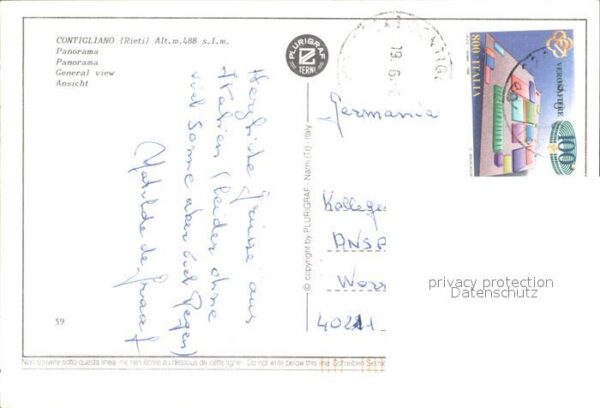 CONTIGLIANO (Rieti) Alt.m.488 s.l.m.
Panorama
Panorama
General view
Ansicht
PLURIGRAF
TERNI
59
© copyright by PLURIGRAF - Narni (Tr) - Italy
Herzliche Grüsse aus
Italien (leider ohne
viel Sonne aber viel Regen)
Mathilde de Graaf
Germania
Kollege
ANSA
40211
19.6
800 ITALIA
VERONAFIERE
100
privacy protection
Datenschutz
Non scrivere sotto questa linea - ne rien écrire au dessous de cette ligne - Do not write below this line